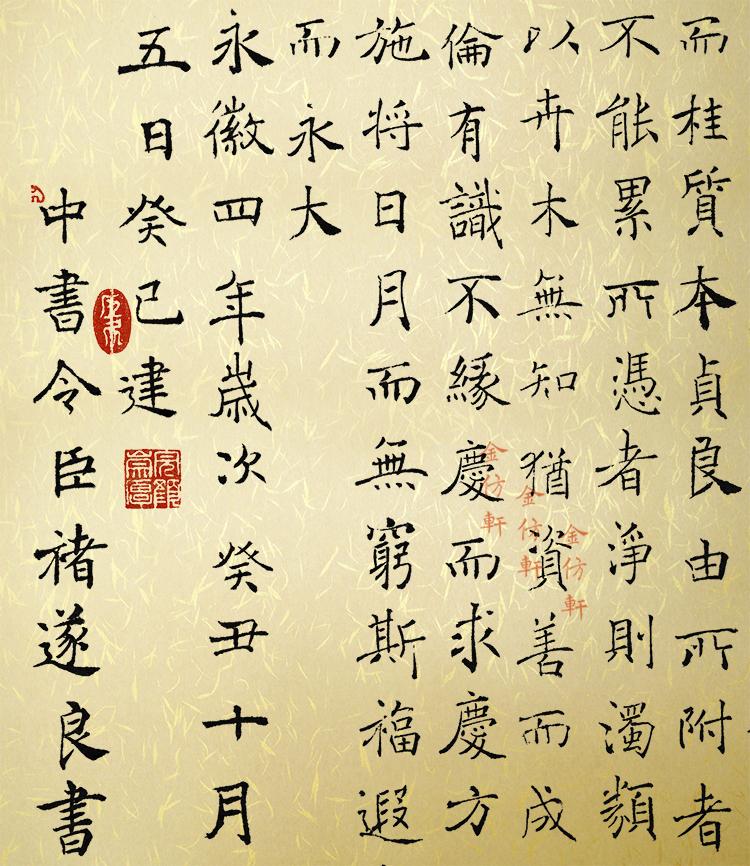 而桂質本貞良由所附者
不能累所憑者淨則濁類
以卉木無知猶資善而成
倫有識不緣慶而求慶方
施将日月而無窮斯福遐
而永大
永徽四年歲次癸丑十月
五日癸巳建
中書令臣褚遂良書
金仿軒
金仿軒
金仿軒